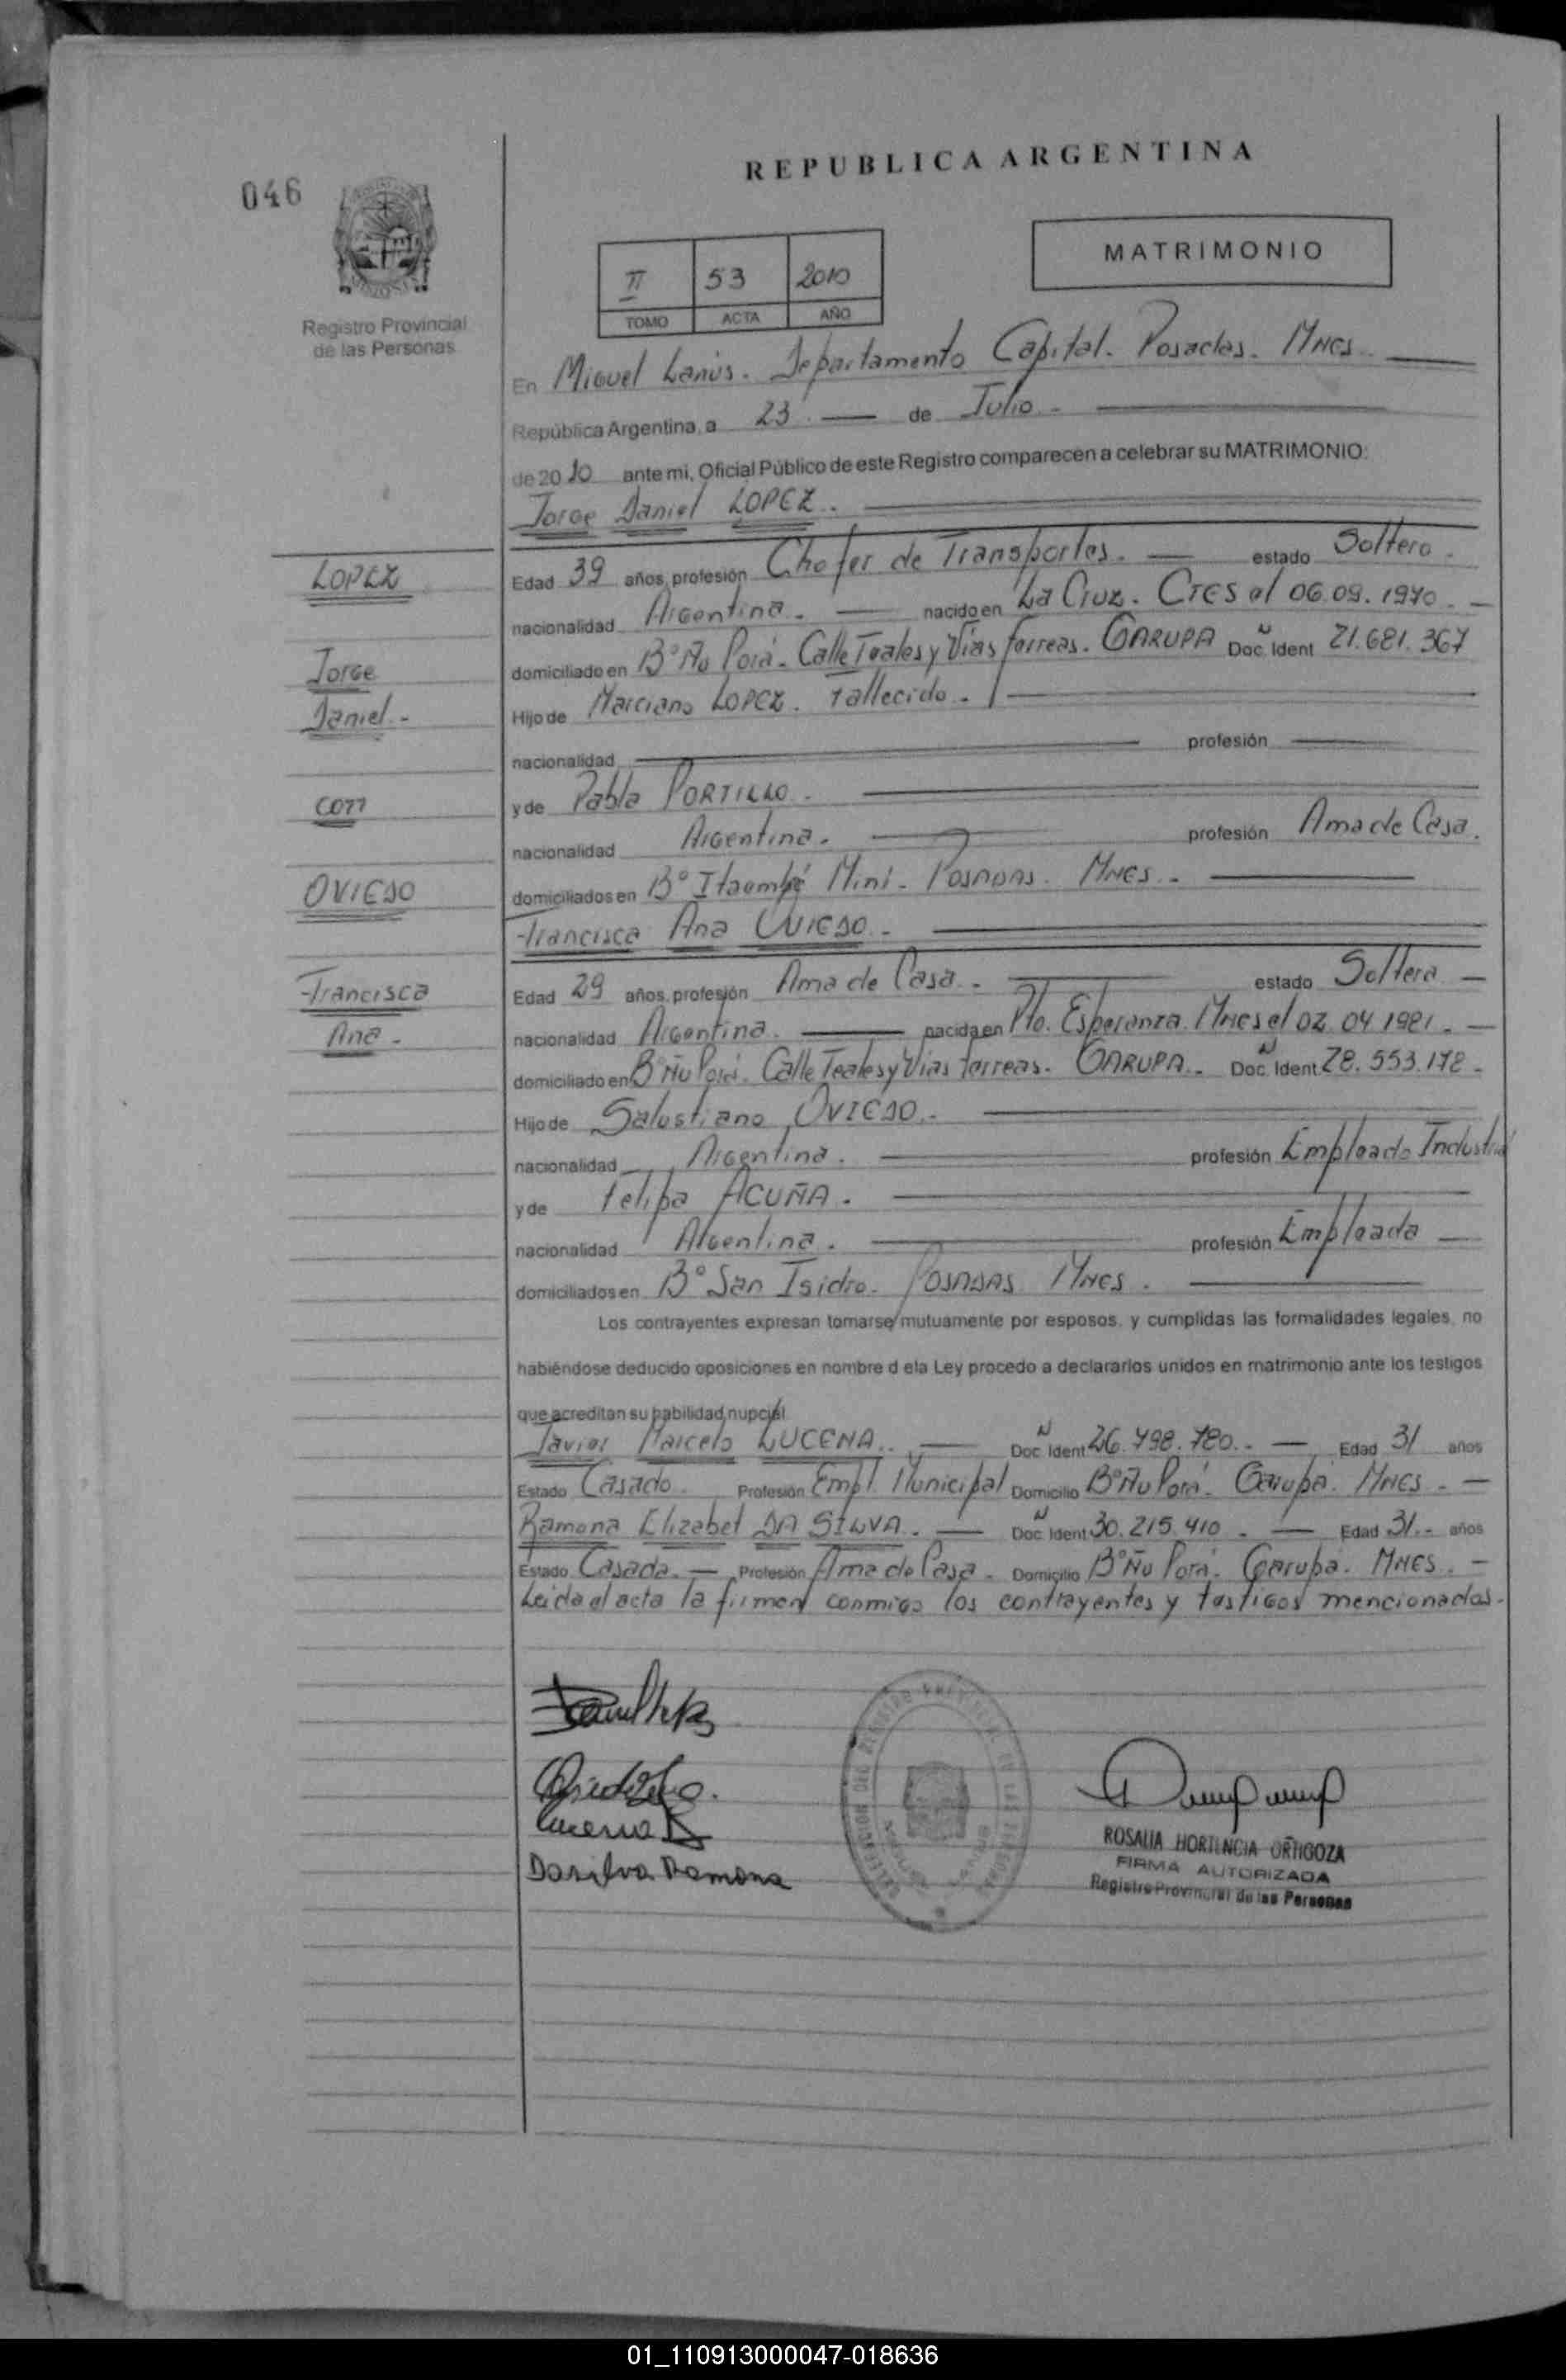 REPUBLICA ARGENTINA
046
MATRIMONIO
II 53 2010
TOMO ACTA AÑO
Registro Provincial
de las Personas
En Miguel Lanús. Departamento Capital. Posadas. Mnes.
República Argentina, a 23 de Julio.
de 2010 ante mi, Oficial Público de este Registro comparecen a celebrar su MATRIMONIO:
Jorge Daniel LOPEZ.
LOPEZ
Edad 39 años, profesión Chofer de Transportes. estado Soltero.
nacionalidad Argentina. nacido en La Cruz. Ctes el 06.09.1970.
Jorge
domiciliado en B° Ñu Porá. Calle Teales y Vias ferreas. GARUPA Doc. Ident N 21.681.367
Daniel.-
Hijo de Marciano LOPEZ. fallecido.
nacionalidad profesión
con
y de Pabla PORTILLO.
nacionalidad Argentina. profesión Ama de Casa.
OVIEDO
domiciliados en B° Itaembé Miní. POSADAS. MNES.
Francisca Ana OVIEDO.
Francisca
Edad 29 años, profesión Ama de Casa. estado Soltera
Ana.-
nacionalidad Argentina. nacida en Pto. Esperanza. Mnes el 02.04.1981.
domiciliado en B° Ñu Porá. Calle Teales y Vias ferreas. GARUPA. Doc. Ident N 28.553.172.
Hijo de Salustiano OVIEDO.
nacionalidad Argentina. profesión Empleado Industrial
y de Felipa ACUÑA.
nacionalidad Argentina. profesión Empleada
domiciliados en B° San Isidro. POSADAS MNES.
Los contrayentes expresan tomarse mutuamente por esposos, y cumplidas las formalidades legales, no
habiéndose deducido oposiciones en nombre d ela Ley procedo a declararlos unidos en matrimonio ante los testigos
que acreditan su habilidad nupcial
Javier Marcelo LUCENA. Doc. Ident N 26.798.780. Edad 31 años
Estado Casado. Profesión Empl. Municipal Domicilio B° Ñu Porá. Garupá. MNES.
Ramona Elizabet DA SILVA. Doc. Ident N 30.215.410. Edad 31. años
Estado Casada. Profesión Ama de Casa. Domicilio B° Ñu Porá. Garupá. MNES.
Leida el acta la firman conmigo los contrayentes y testigos mencionados.
Lucena
Dasilva Ramona
ROSALIA HORTENCIA ORTIGOZA
FIRMA AUTORIZADA
Registro Provincial de las Personas
01_110913000047-018636